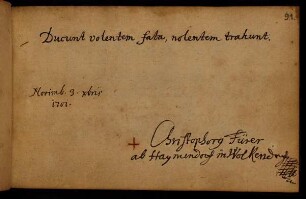 91.
Ducunt volentem fata, nolentem trahunt.
Noricab. 3. xbris
1701.
Christophorg Fürer
ab Haymendorf in Wolkersdorf